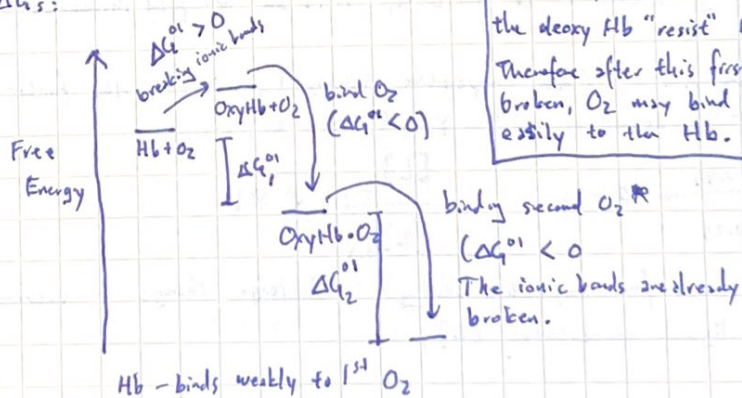 ΔG°' > 0
breaking ionic bonds
Free
Energy
Hb + O₂
OxyHb + O₂
ΔG₁°'
bind O₂
(ΔG°' < 0)
OxyHb • O₂
ΔG₂°'
binding second O₂
(ΔG°' < 0
The ionic bonds are already
broken.
Hb - binds weakly to 1st O₂
the deoxy Hb "resist"
Therefore after this firs
broken, O₂ may bind
easily to the Hb.